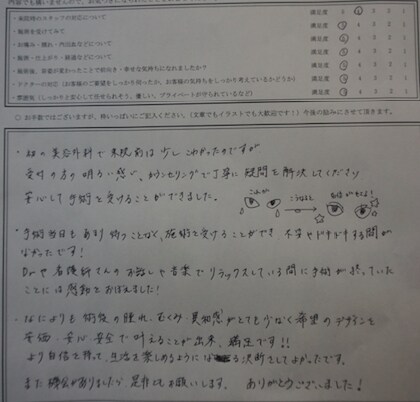 ・来院時のスタッフの対応について 満足度 5 4 3 2 1
・施術を受けてみて 満足度 5 4 3 2 1
・お痛み・腫れ・内出血などについて 満足度 5 4 3 2 1
・施術・仕上がり・経過などについて 満足度 5 4 3 2 1
・施術後、容姿が変わったことで前向き・幸せな気持ちになれましたか? 満足度 5 4 3 2 1
・ドクターの対応(お客様のご要望をしっかり伺ったか、お客様の気持ちをしっかり考えているかどうか) 満足度 5 4 3 2 1
・雰囲気(しっかりと安心して任せられそう、優しい、プライベートが守られているなど) 満足度 5 4 3 2 1
○お手数ではございますが、枠いっぱいにご記入ください。(文章でもイラストでも大歓迎です!)今後の励みにさせて頂きます。
・初の美容外科で来院前は少しこわかったのですが
受付の方の明るい感じ、カウンセリングで丁寧に疑問を解決してくださり
安心して手術を受けることができました。
これが
こうなりました
・手術当日もあまり待つことなく、施術を受けることができ 不安やドキドキする間が
なかったです!
Drや看護師さんのお話しや音楽でリラックスしている間に手術が終っていた
ことには感動をおぼえました!
・なによりも術後の腫れ、むくみ・異和感がとても少なく希望のデザインを
安価・安心・安全で叶えることが出来、満足です!!
より自信を持って、生活を楽しめるように 決断をしてよかったです。
また機会がありましたら是非ともお願いします。 ありがとうございました!